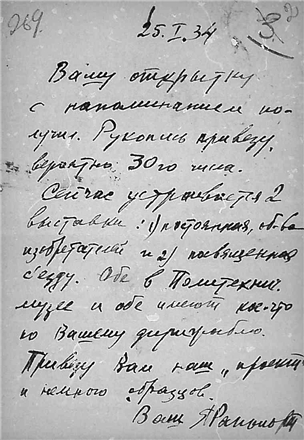 269.
25.I.34
Вашу открытку
с напоминанием по-
лучил. Рукопись привезу,
вероятно 30го числа.
Сейчас устраивается 2
выставки: 1) постоянная, об-ва
изобретателей и 2) посвященная
съезду. Обе в Политехнич.
музее и обе имеют кое-что
по Вашему дирижаблю.
Привезу Вам наш „проект“
и немного образцов.
Ваш ЯРапопорт